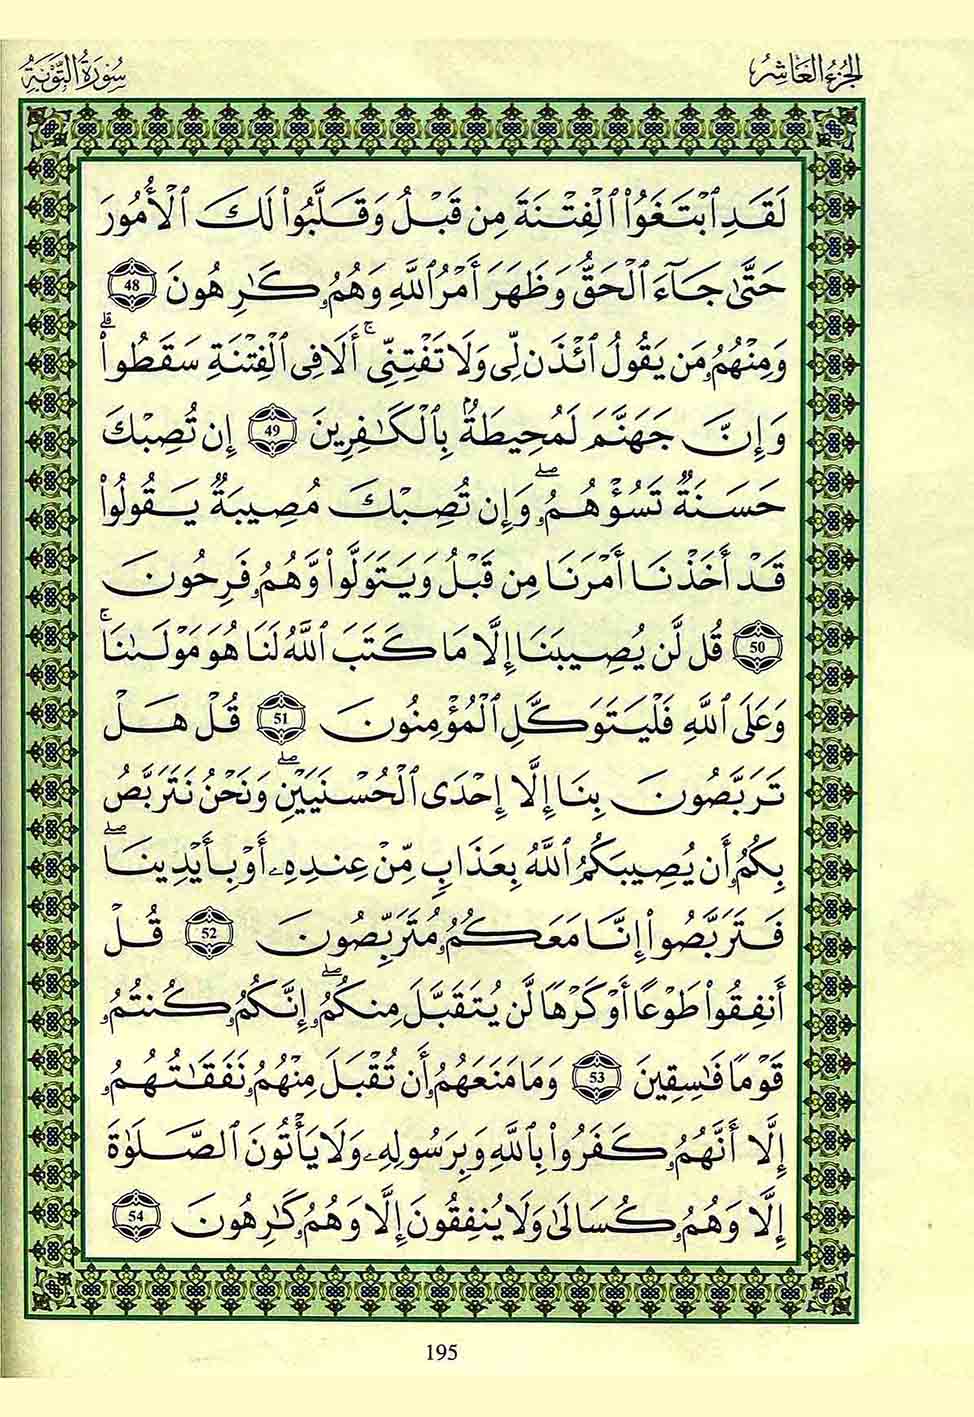 الجزء العاشر
سورة التوبة
لَقَدِ ٱبْتَغَوُا۟ ٱلْفِتْنَةَ مِن قَبْلُ وَقَلَّبُوا۟ لَكَ ٱلْأُمُورَ
حَتَّىٰ جَآءَ ٱلْحَقُّ وَظَهَرَ أَمْرُ ٱللَّهِ وَهُمُۥ كَٰرِهُونَ 48
وَمِنْهُمُۥ مَن يَقُولُ ٱئْذَن لِّى وَلَا تَفْتِنِّىٓ ۚ أَلَا فِى ٱلْفِتْنَةِ سَقَطُوا۟ ۗ
وَإِنَّ جَهَنَّمَ لَمُحِيطَةٌۢ بِٱلْكَٰفِرِينَ 49 إِن تُصِبْكَ
حَسَنَةٌ تَسُؤْهُمُۥ ۖ وَإِن تُصِبْكَ مُصِيبَةٌ يَقُولُوا۟
قَدْ أَخَذْنَا أَمْرَنَا مِن قَبْلُ وَيَتَوَلَّوا۟ وَّهُمُۥ فَرِحُونَ
50 قُل لَّن يُصِيبَنَا إِلَّا مَا كَتَبَ ٱللَّهُ لَنَا هُوَ مَوْلَىٰنَا ۚ
وَعَلَى ٱللَّهِ فَلْيَتَوَكَّلِ ٱلْمُؤْمِنُونَ 51 قُلْ هَلْ
تَرَبَّصُونَ بِنَا إِلَّا إِحْدَى ٱلْحُسْنَيَيْنِ ۖ وَنَحْنُ نَتَرَبَّصُ
بِكُمُۥ أَن يُصِيبَكُمُ ٱللَّهُ بِعَذَابٍ مِّنْ عِندِهِۦ أَوْ بِأَيْدِينَا ۖ
فَتَرَبَّصُوا۟ إِنَّا مَعَكُمُۥ مُتَرَبِّصُونَ 52 قُلْ
أَنفِقُوا۟ طَوْعًا أَوْ كَرْهًا لَّن يُتَقَبَّلَ مِنكُمُۥ ۖ إِنَّكُمُۥ كُنتُمُۥ
قَوْمًا فَٰسِقِينَ 53 وَمَا مَنَعَهُمُۥ أَن تُقْبَلَ مِنْهُمُۥ نَفَقَٰتُهُمُۥ
إِلَّا أَنَّهُمُۥ كَفَرُوا۟ بِٱللَّهِ وَبِرَسُولِهِۦ وَلَا يَأْتُونَ ٱلصَّلَوٰةَ
إِلَّا وَهُمُۥ كُسَالَىٰ وَلَا يُنفِقُونَ إِلَّا وَهُمُۥ كَٰرِهُونَ 54
195